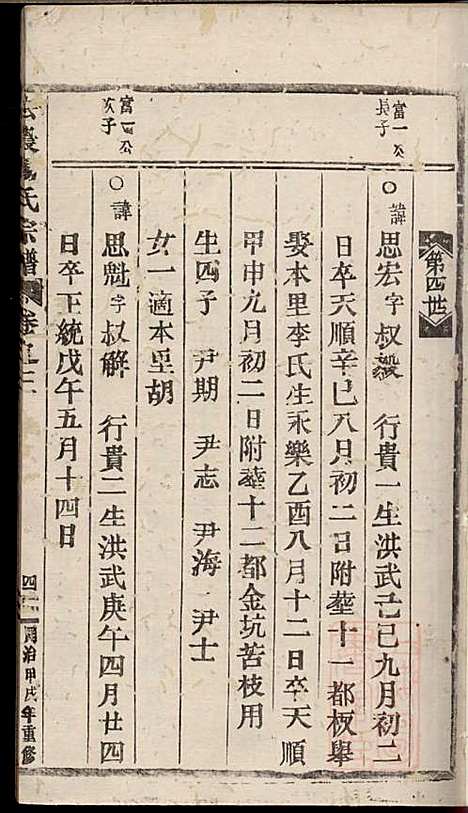 第四世
富一公
長子
○諱思宏字叔毅 行貴一生洪武己巳九月初二
日卒天順辛巳八月初二日附塟十一都板舉
娶本里李氏生永樂乙酉八月十二日卒天順
甲申九月初二日附塟十二都金坑苦枝用
生四子 尹期 尹志 尹海 尹士
女一適本里胡
富一公
次子
○諱思魁字叔解 行貴二生洪武庚午四月廿四
日卒正統戊午五月十四日
氏宗譜 卷之
同治甲戌年重修